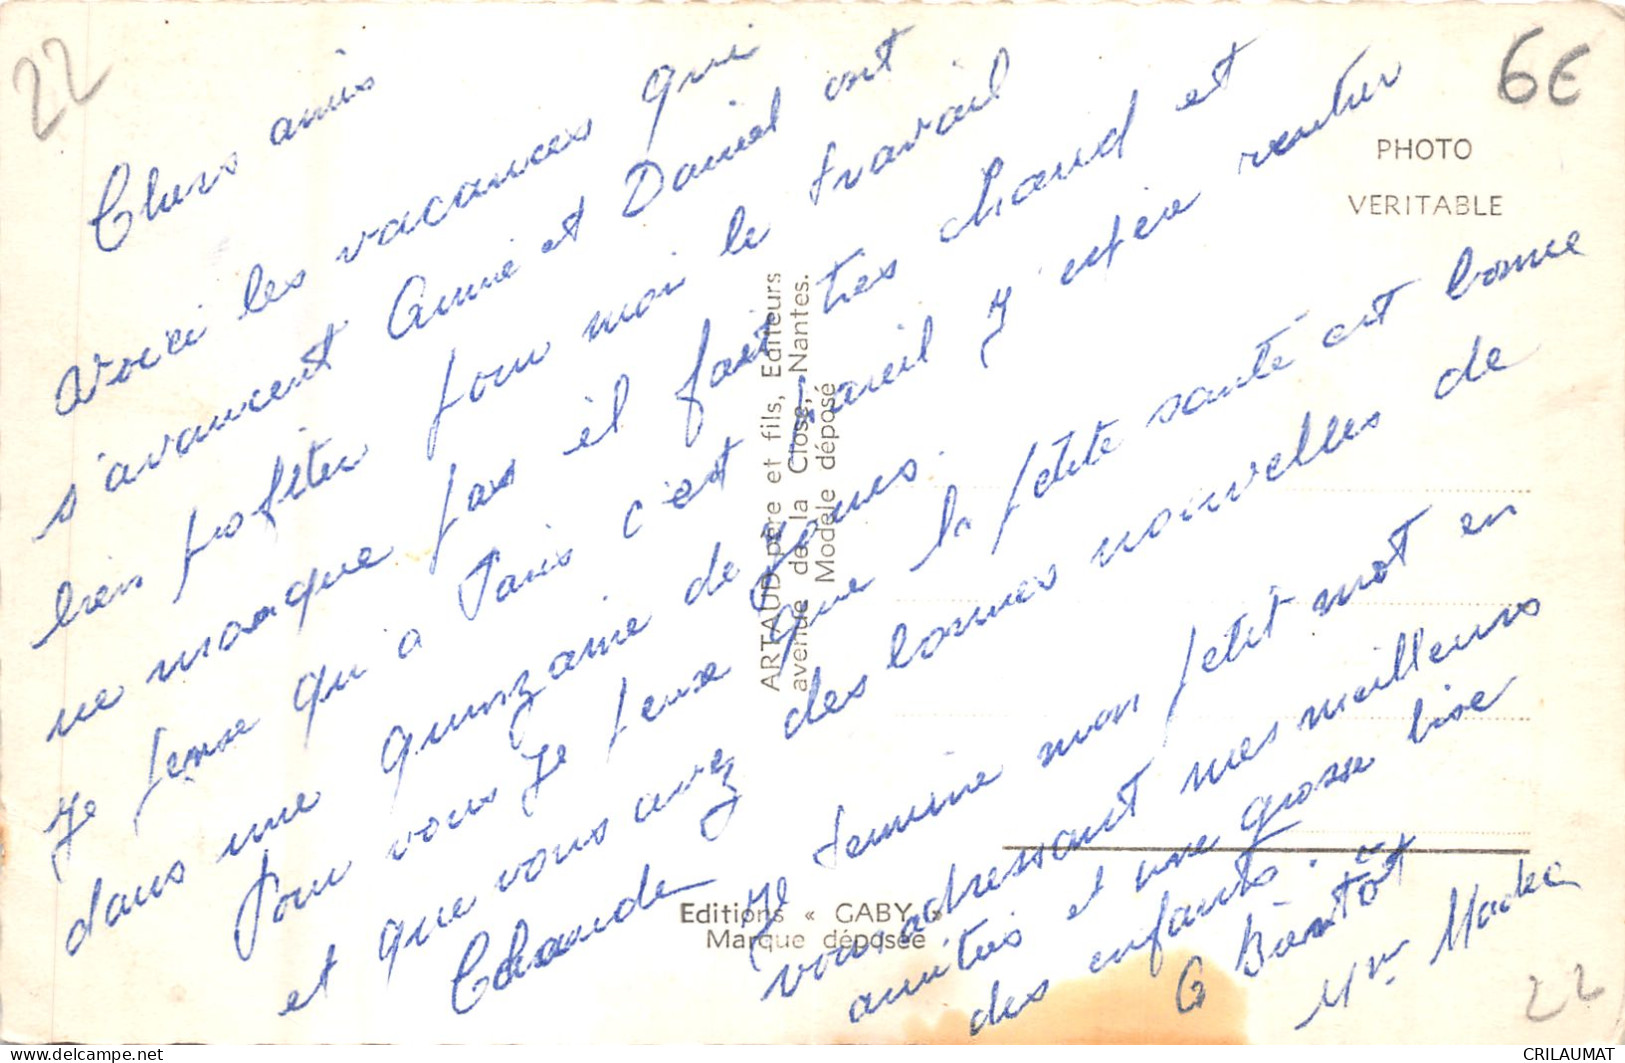 22
6€
PHOTO
VERITABLE
Chers amis
Voici les vacances qui
s'avancent Annie et Daniel ont
bien profiter pour moi le travail
ne manque pas il fait très chaud et
je pense qu'a Paris c'est pareil j'espère rentrer
dans une quinzaine de jours.
Pour vous je pense que la petite santé est bonne
et que vous avez des bonnes nouvelles de
Claude
je termine mon petit mot en
vous adressant mes meilleurs
amitiés et une grosse bise
des enfants.
a Bientôt
Mme
ARTAUD père et fils, Editeurs
avenue de la Close, Nantes.
Modèle déposé
Editions « GABY »
Marque déposée
22
CRILAUMAT